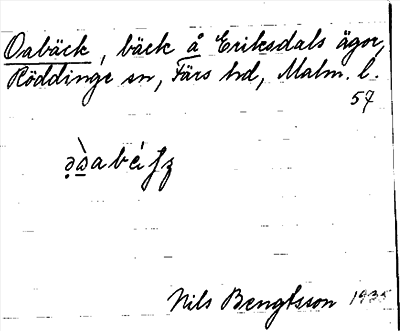 Oabäck, bäck å Eriksdals ägor,
Röddinge sn, Färs hd, Malm. l.
57
Nils Bengtsson 1935